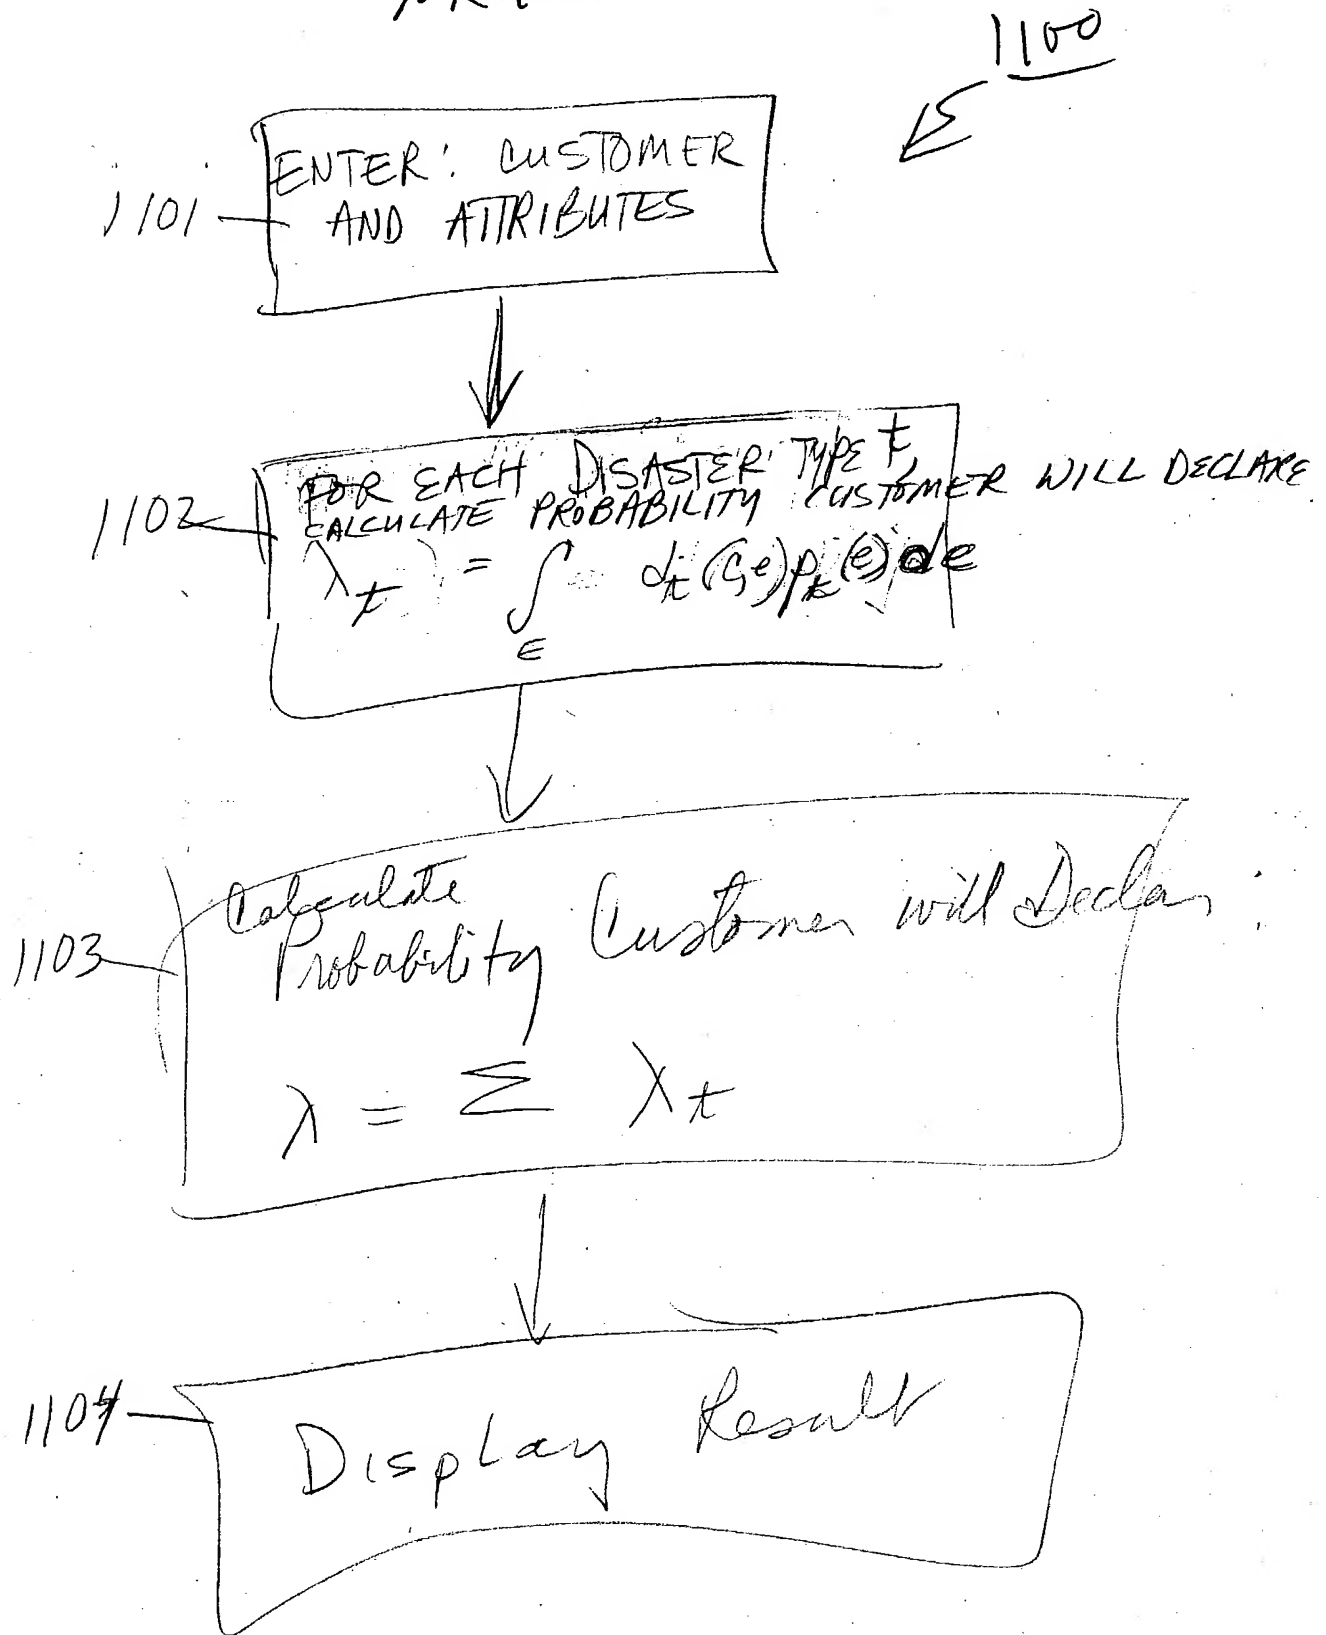 1100
ENTER: CUSTOMER
AND ATTRIBUTES
1101
FOR EACH DISASTER TYPE t,
CALCULATE PROBABILITY CUSTOMER WILL DECLARE
1102
λt = ∫E dt(c,e)pt(e)de
Calculate
Probability Customer will Declare:
1103
λ = Σ λt
1104
Display Result